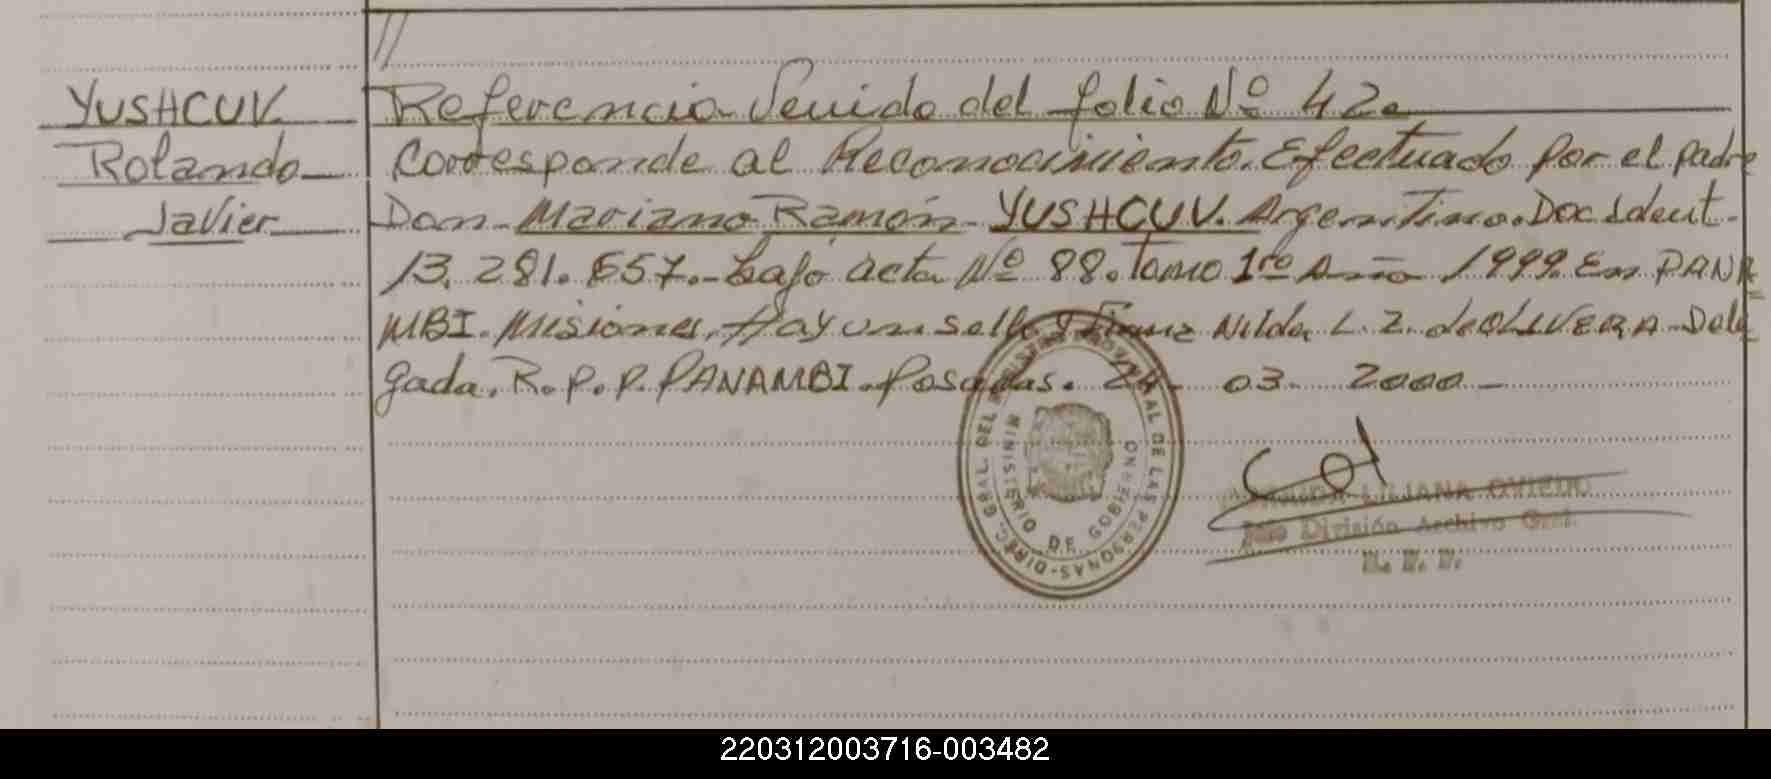 //
YUSHCUV.
Rolando
Javier
Referencia Venida del folio Nº 42.
Corresponde al Reconocimiento. Efectuado por el padre
Don Mariano Ramón YUSHCUV. Argentino. Doc Ident.
13.281.657.- bajo acta Nº 88. Tomo 1ro Año 1999. En PANA
MBI. Misiones. Hay un sello y firma Nilda L. Z. de OLIVERA. Dele
gada. R.P.P. PANAMBI. Posadas. 24 - 03 - 2000 -
DIREC. GRAL. DEL REGISTRO PROVINCIAL DE LAS PERSONAS-
MINISTERIO DE GOBIERNO
LILIANA OVIEDO
Jefe División Archivo Gral.
R. P. P.
220312003716-003482